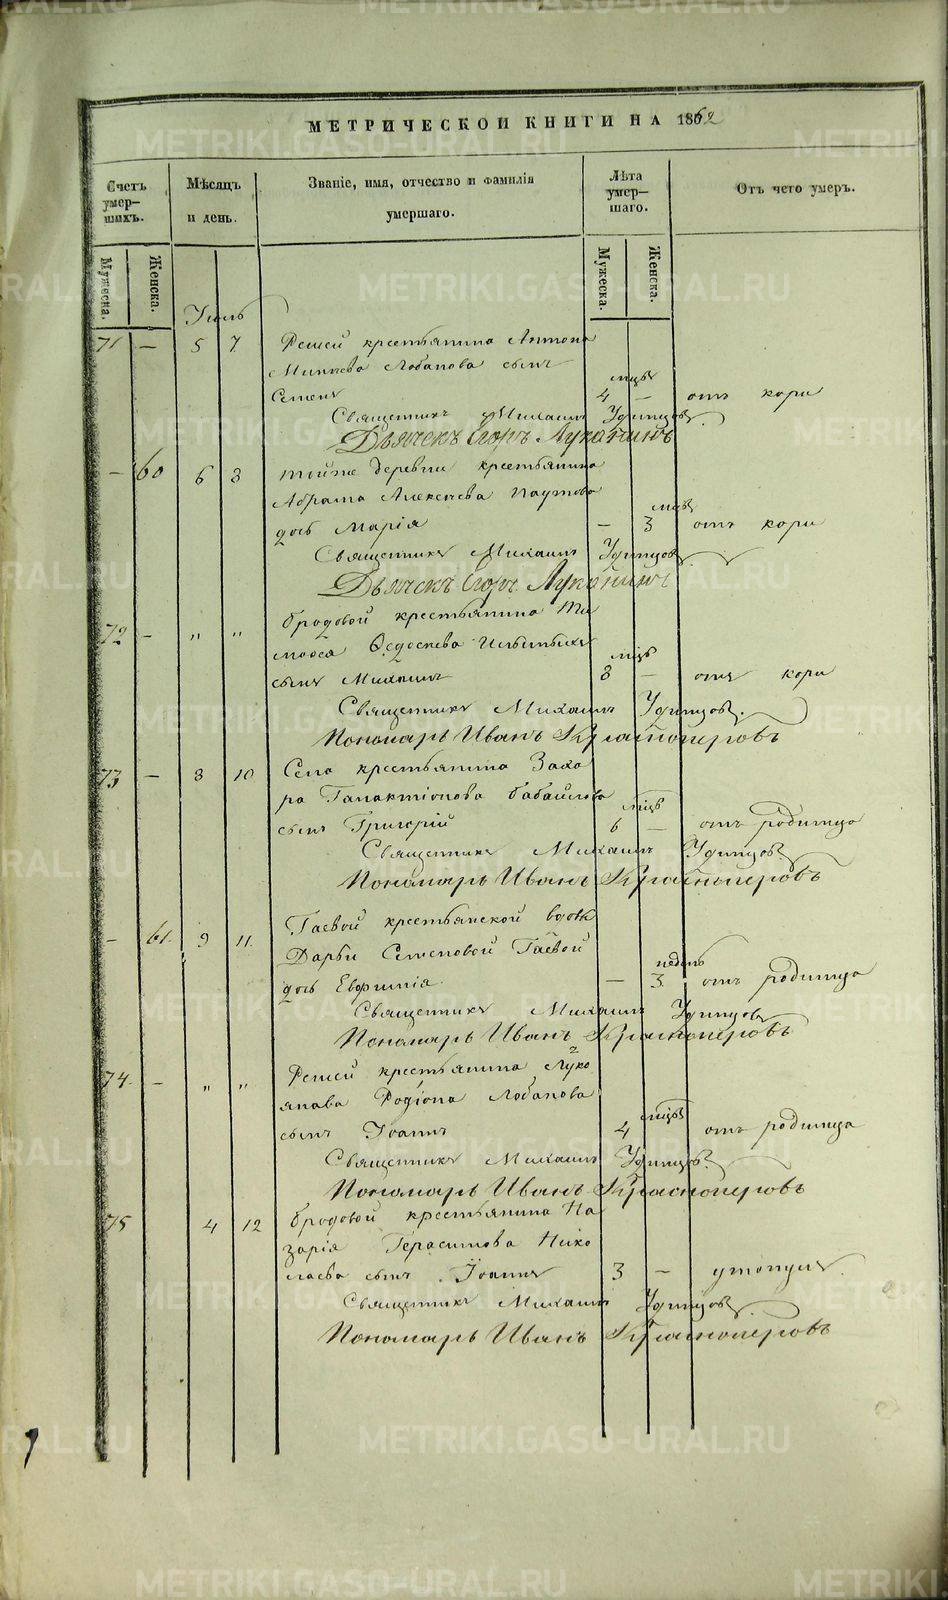 МЕТРИЧЕСКОЙ КНИГИ НА 1862
Счетъ умер-шихъ.
Мѣсяцъ и день.
Званіе, имя, отчество и фамилія умершаго.
Лѣта умер-шаго.
Отъ чего умеръ.
Мужеска. Женска.
Мужеска. Женска.
Іюль
71 — 5 7 крестьянина Антона
Лобанова сынъ мцвъ
Семенъ 4 — отъ кори
Священникъ Михаилъ Удинцовъ.
Дьячекъ Егоръ Луканинъ
— 60 6 8 тойже деревни крестьянина
Абрама Алексѣева мцвъ
дочь Марія — 3 отъ кори
Священникъ Михаилъ Удинцовъ.
Дьячекъ Егоръ Луканинъ
72 — " " бродовой крестьянина Ти
моѳея Ѳедосѣева мцвъ
сынъ Михаилъ 8 — отъ кори
Священникъ Михаилъ Удинцовъ.
Пономарь Иванъ Красноперовъ
73 — 8 10 Села крестьянина Заха
ра Галактіонова Бабайлова мцвъ
сынъ Григорій 6 — отъ родимца
Священникъ Михаилъ Удинцовъ
Пономарь Иванъ Красноперовъ
— 61. 9 11. Гаевой крестьянской вдовы
Дарьи Семеновой Гаевой недель
дочь Евфимія — 3 отъ родимца
Священникъ Михаилъ Удинцовъ
Пономарь Иванъ Красноперовъ
74. — " " крестьянина Луко
янава Родіона Лобанова мцвъ
сынъ Іоаннъ 4 отъ родимца
Священникъ Михаилъ Удинцовъ.
Пономарь Иванъ Красноперовъ
75 4 12 бродовой крестьянина На
зарія Герасимова Нико
лаева сынъ Іоаннъ 3 — утонулъ.
Священникъ Михаилъ Удинцовъ.
Пономарь Иванъ Красноперовъ
METRIKI.GASO-URAL.RU